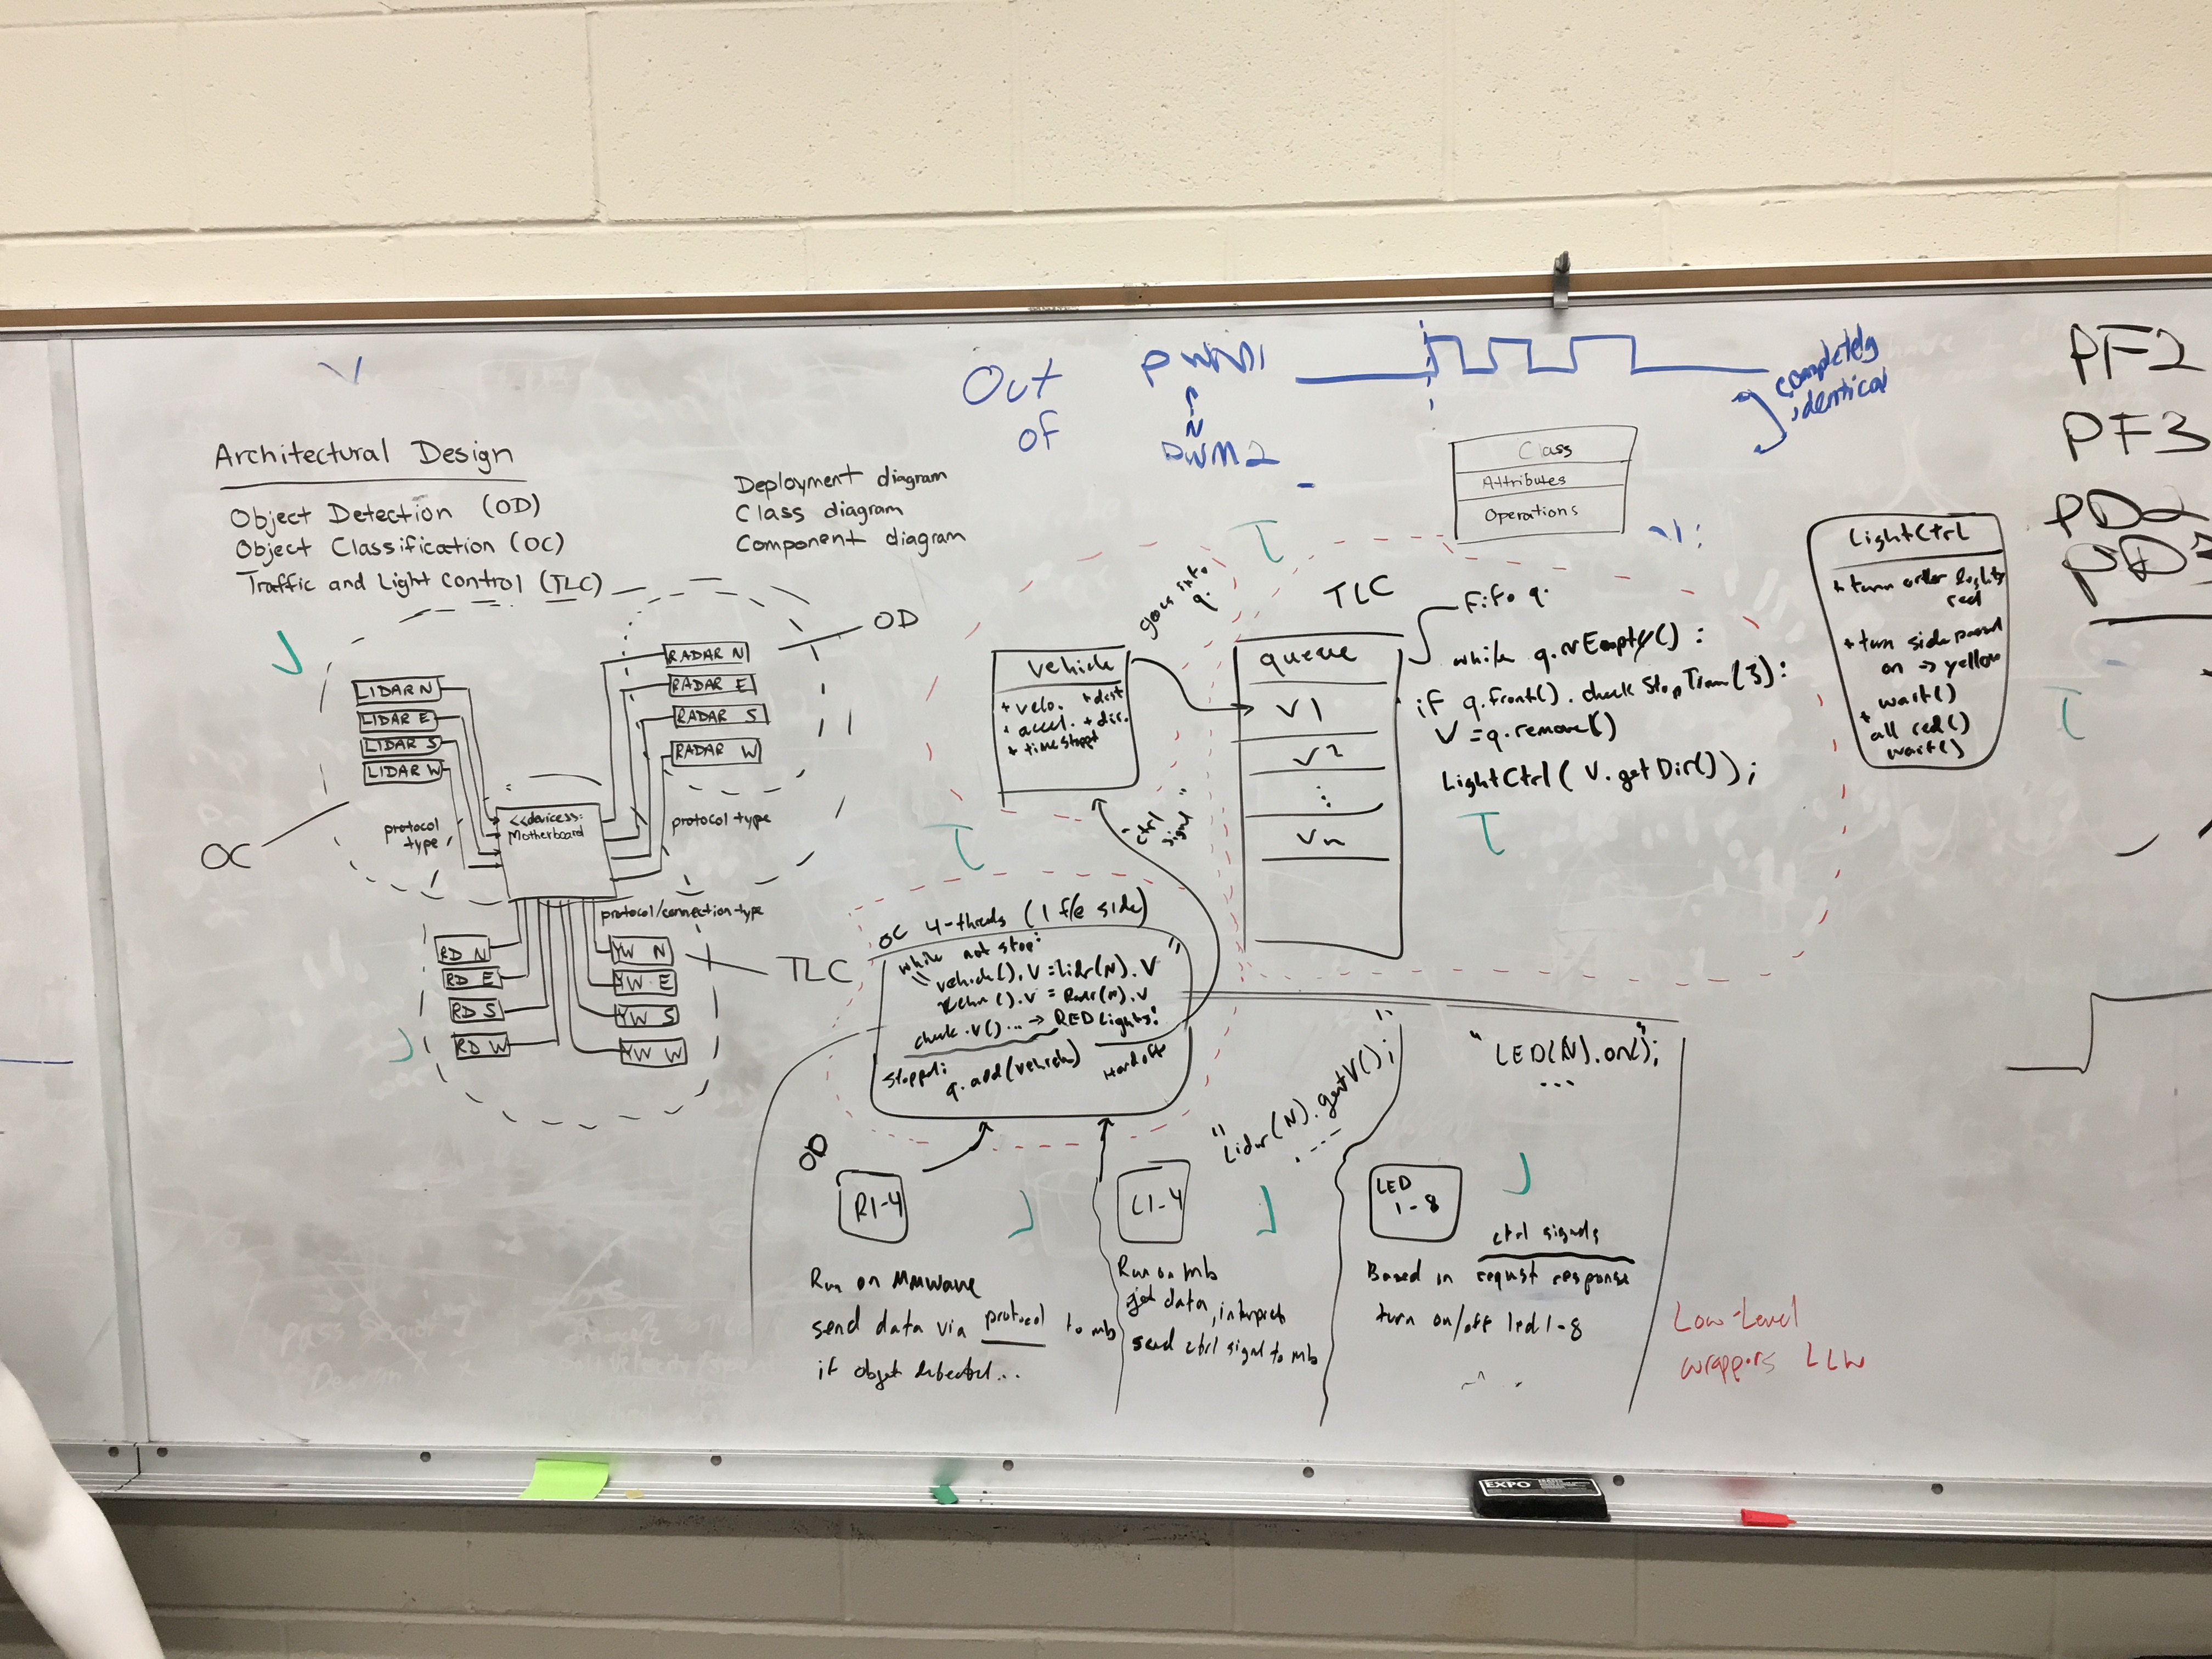 Out
of
PWM1
PWM2
completely
identical
PF2
PF3
PD2
Architectural Design
Object Detection (OD)
Object Classification (OC)
Traffic and Light Control (TLC)
Deployment diagram
Class diagram
Component diagram
Class
Attributes
Operations
OD
OC
TLC
LIDAR N
LIDAR E
LIDAR S
LIDAR W
RADAR N
RADAR E
RADAR S
RADAR W
protocol
type
<<devices:
Motherboard
protocol type
protocol/connection type
RD N
RD E
RD S
RD W
YW N
YW E
YW S
YW W
vehicle
+ velo. + dist
+ accel. + dir.
+ time stoppt
goes into
q.
"ctrl
signal"
TLC
queue
V1
V2
⋮
Vn
Fifo q.
while q.nEmpty() :
if q.front().checkStopTram(3):
V = q.remove()
LightCtrl( V.getDir());
LightCtrl
+ turn order lights
red
+ turn side passed
on → yellow
wait()
+ all red()
wait()
OC 4-threds (1 f/e side)
while not stop:
"vehicle().V = Lidr(N).V
().V = Radr(N).V
check.V()... → RED Lights:
stopped:
q.add(vehicle)
OD
R1-4
Run on MMWave
send data via protocol to mb
if objet detected...
L1-4
"Lidar(N).getV();"
...
Run on mb
get data, interpret
send ctrl signl to mb
"LED(N).on();"
...
LED
1-8
ctrl signals
Based in requst response
turn on/off led 1-8
Low-Level
wrappers LLW
EXPO